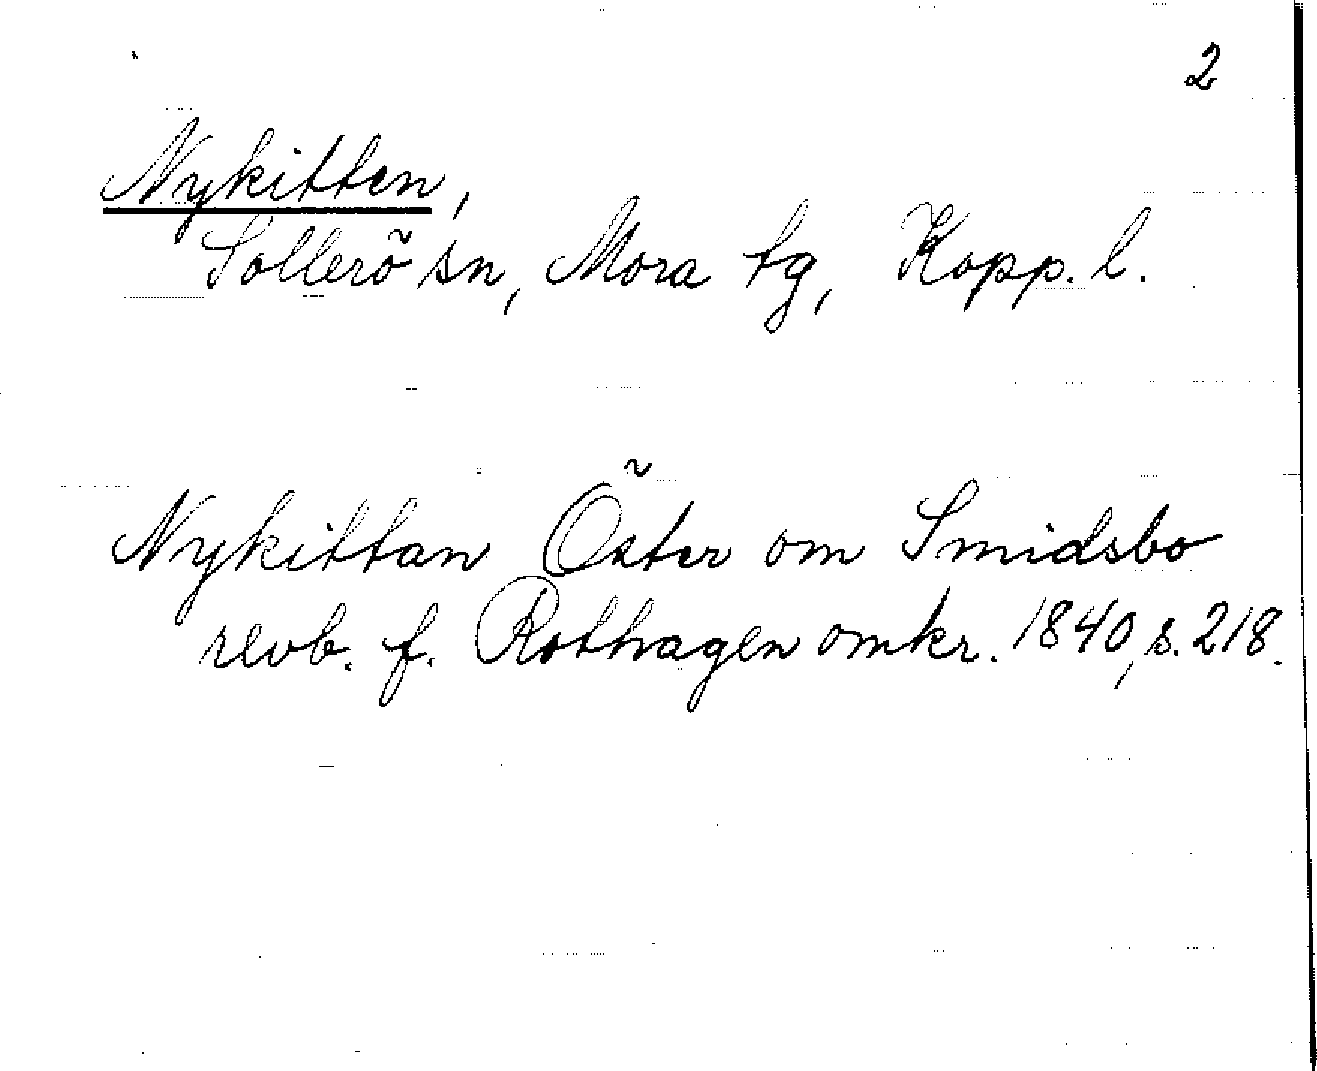 2
Nykitten,
Sollerö sn, Mora tg, Kopp. l.
Nykittan Öster om Smidsbo
revb. f. Rothagen omkr. 1840, s. 218.